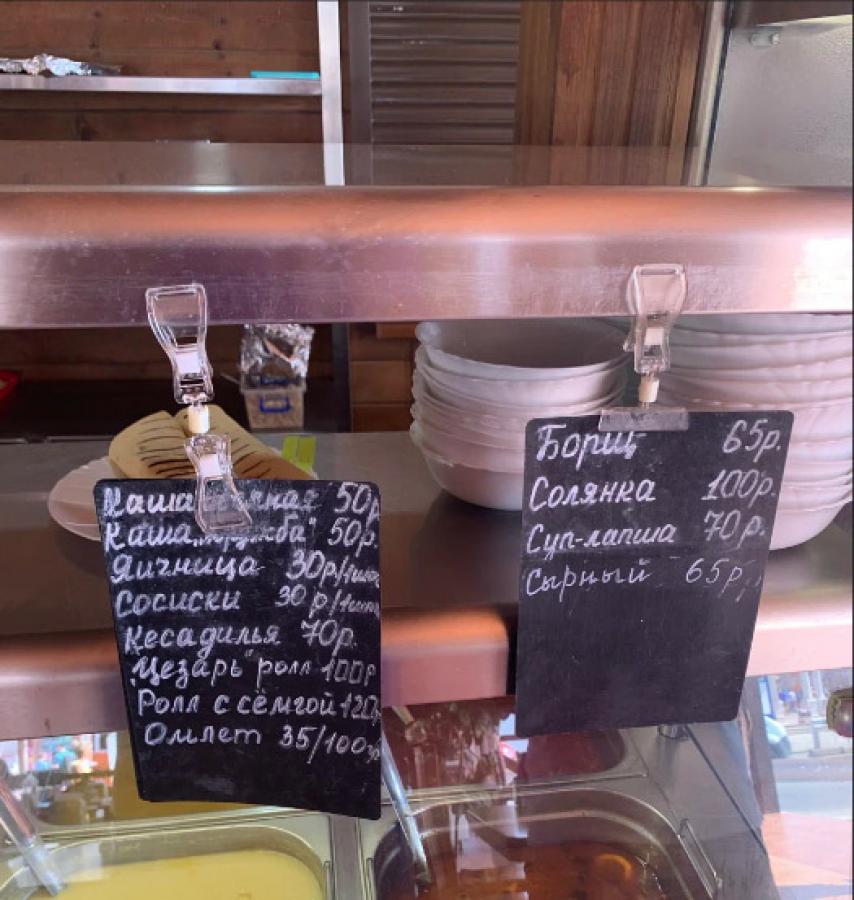 Каша 50р
Каша „Дружба" 50р.
Яичница 30р/1шт
Сосиски 30р/1шт
Кесадилья 70р.
"Цезарь" ролл 100р
Ролл с сёмгой 120р
Омлет 35/100гр
Борщ 65р.
Солянка 100р.
Суп-лапша 70р.
Сырный 65р.